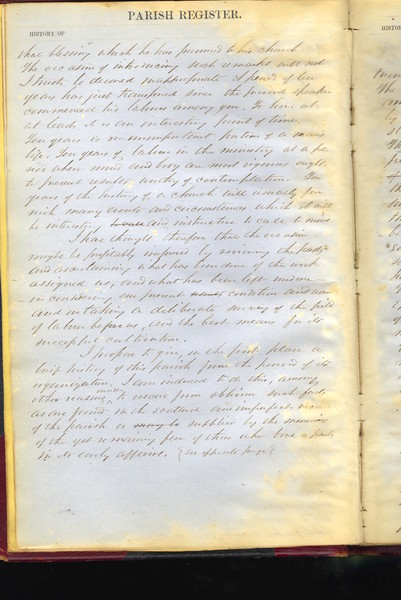 PARISH REGISTER.
HISTORY OF
that blessing which he has promised to his church
The occasion of introducing such remarks will not
I trust, be deemed inappropriate. A period of ten
years has just transpired since the present speaker
commenced his labours among you. To him at
at least, it is an interesting point of time.
Ten years is no unimportant portion of a man's
life. Ten years of labor in the ministry at a pe-
riod when mind and body are most vigorous ought
to present results worthy of contemplation. Ten
years of the history of a church will usually fur-
nish many events and circumstances which it will
be interesting and instructive to call to mind
I have thought therefore that the occasion
might be profitably improved by reviewing the past,
and ascertaining what has been done of the work
assigned us, and what has been left undone
in considering our present condition and wants
and in taking a deliberate survey of the field
of labor before us, and the best means for its
successful cultivation.
I propose to give, in the first place a
brief history of this parish from the period of its
organization. I am induced to do this, among
other reasons, to rescue from oblivion such facts
as are found in the scattered and imperfect records
of the parish or may be supplied by the memories
of the yet remaining few of those who bore a part
in its early affairs. {See opposite page}
HISTOR